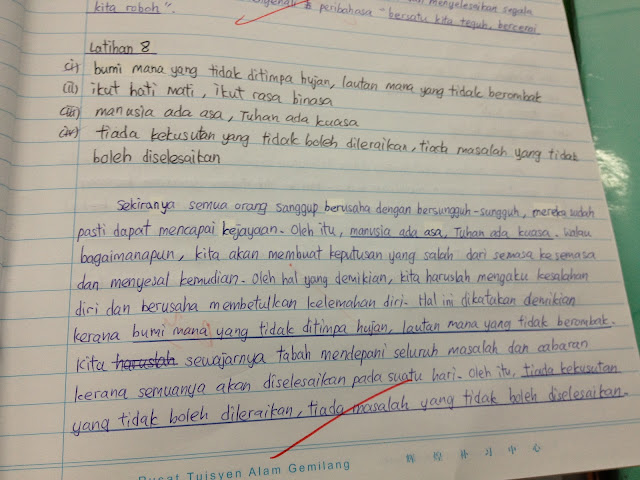 menyelesaikan segala
kita roboh". peribahasa "bersatu kita teguh, bercerai
Latihan 8
(i) bumi mana yang tidak ditimpa hujan, lautan mana yang tidak berombak
(ii) ikut hati mati, ikut rasa binasa
(iii) manusia ada asa, Tuhan ada kuasa
(iv) tiada kekusutan yang tidak boleh dileraikan, tiada masalah yang tidak
boleh diselesaikan
Sekiranya semua orang sanggup berusaha dengan bersungguh-sungguh, mereka sudah
pasti dapat mencapai kejayaan. Oleh itu, manusia ada asa, Tuhan ada kuasa. Walau
bagaimanapun, kita akan membuat keputusan yang salah dari semasa ke semasa
dan menyesal kemudian. Oleh hal yang demikian, kita haruslah mengaku kesalahan
diri dan berusaha membetulkan kelemahan diri. Hal ini dikatakan demikian
kerana bumi mana yang tidak ditimpa hujan, lautan mana yang tidak berombak.
Kita haruslah sewajarnya tabah mendepani seluruh masalah dan cabaran
kerana semuanya akan diselesaikan pada suatu hari. Oleh itu, tiada kekusutan
yang tidak boleh dileraikan, tiada masalah yang tidak boleh diselesaikan.
Pusat Tuisyen Alam Gemilang 辉煌补习中心